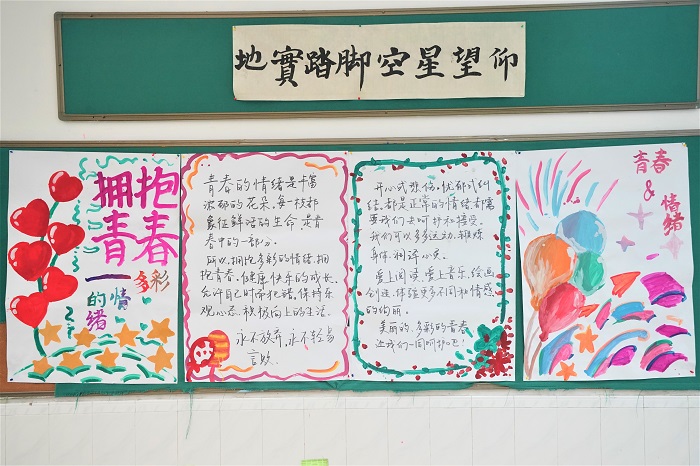 仰望星空脚踏實地
拥抱
青春
——多彩
的情绪
青春的情绪是丰富
浓郁的花朵,每一枝都
象征鲜活的生命,是青
春中的一部分。
所以,拥抱多彩的情绪,拥
抱青春。健康快乐的成长,
允许自己时常犯错,保持乐
观心态,积极向上的生活。
永不放弃,永不轻易
言败.
开心或悲伤,忧郁或纠
结,都是正常的情绪,都需
要我们去呵护和接受。
我们可以多多运动,锻炼
身体,心灵。
爱上阅读,爱上音乐,绘画
创造,体验更多不同和情感
的绚丽。
美丽的,多彩的青春
让我们一同呵护吧!
青春
&
情绪